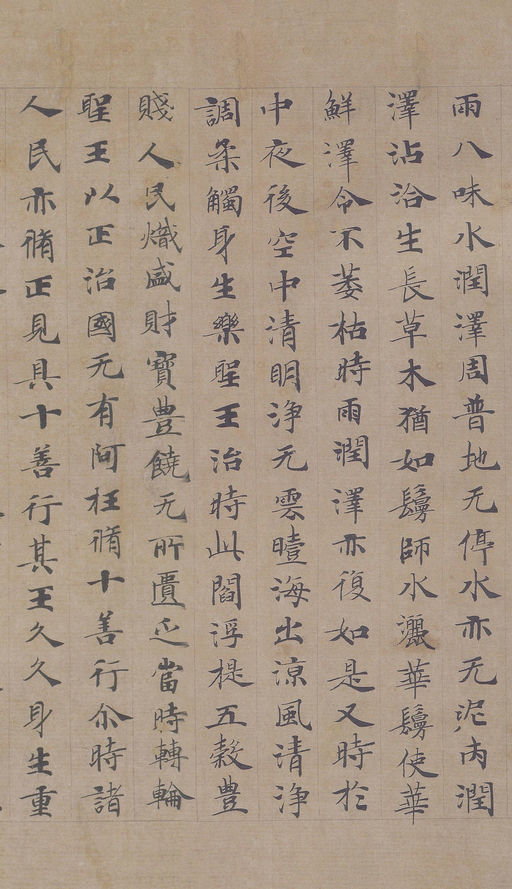 雨八味水潤澤周普地无停水亦无泥洿潤
澤沾洽生長草木猶如鬘師水灑華鬘使華
鮮澤令不萎枯時雨潤澤亦復如是又時於
中夜後空中清明淨无雲曀海出涼風清淨
調柔觸身生樂聖王治時此閻浮提五穀豐
賤人民熾盛財寶豊饒无所匱乏當時轉輪
聖王以正治國无有阿枉脩十善行尒時諸
人民亦脩正見具十善行其王久久身生重